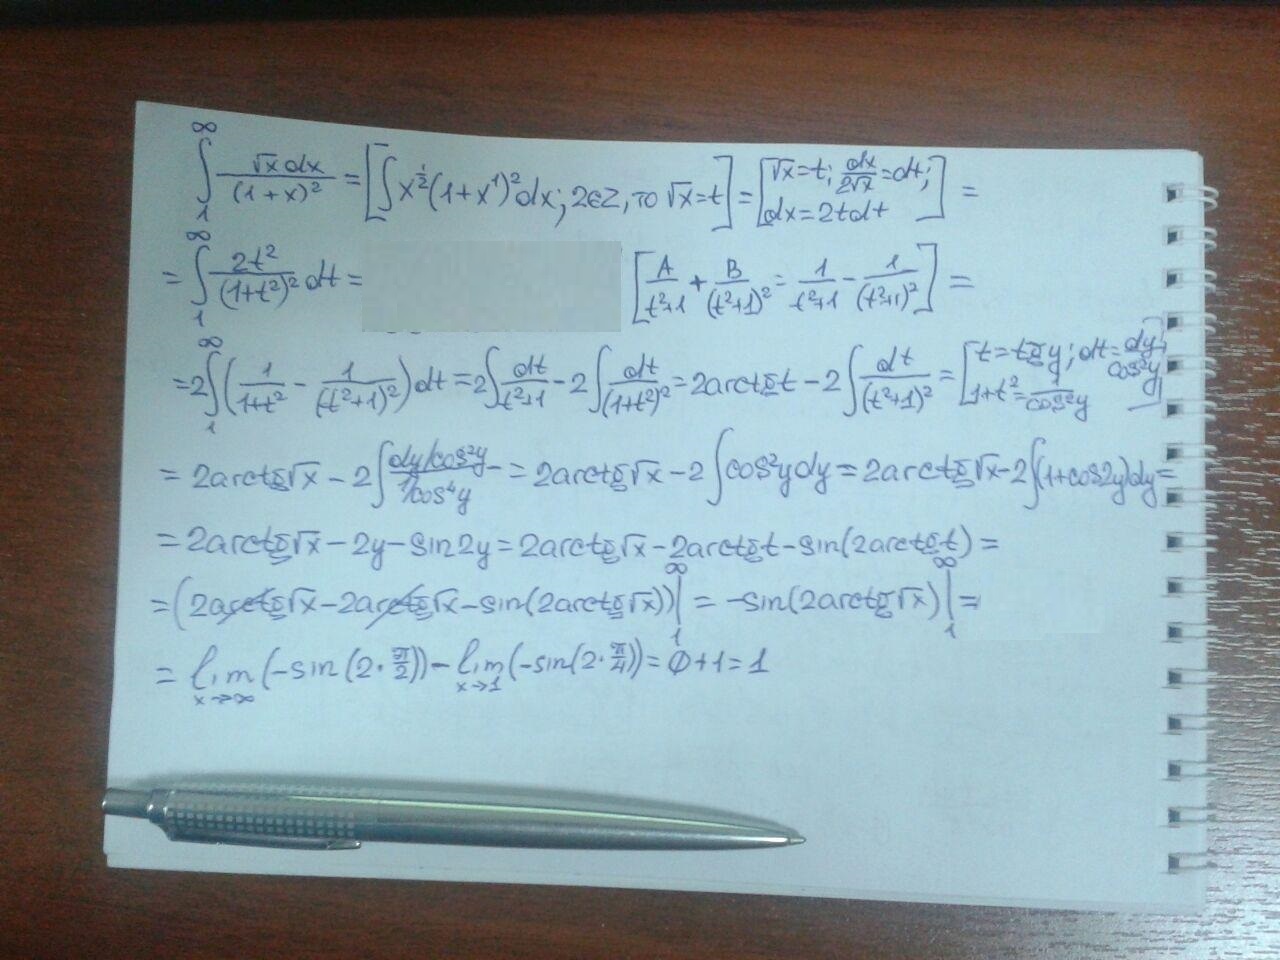 ∫₁^∞ √x dx/(1+x)² = [∫x^{1/2}(1+x¹)²dx; 2∈Z, то √x=t] = [√x=t; dx/2√x=dt; dx=2tdt] =
= ∫₁^∞ 2t²/(1+t²)² dt = [A/(t²+1) + B/(t²+1)² = 1/(t²+1) − 1/(t²+1)²] =
=2∫₁^∞(1/(1+t²) − 1/(t²+1)²)dt =2∫dt/(t²+1) − 2∫dt/(1+t²)² = 2arctgt − 2∫dt/(t²+1)² = [t=tgy; dt=dy/cos²y; 1+t²=1/cos²y]
= 2arctg√x − 2∫(dy/cos²y)/(1/cos⁴y) = 2arctg√x − 2∫cos²ydy = 2arctg√x−2∫(1+cos2y)dy=
= 2arctg√x − 2y − sin2y = 2arctg√x − 2arctgt − sin(2arctgt) =
= (2arctg√x − 2arctg√x − sin(2arctg√x))|₁^∞ = −sin(2arctg√x)|₁^∞ =
= lim_{x→∞}(−sin(2·π/2)) − lim_{x→1}(−sin(2·π/4)) = 0+1=1